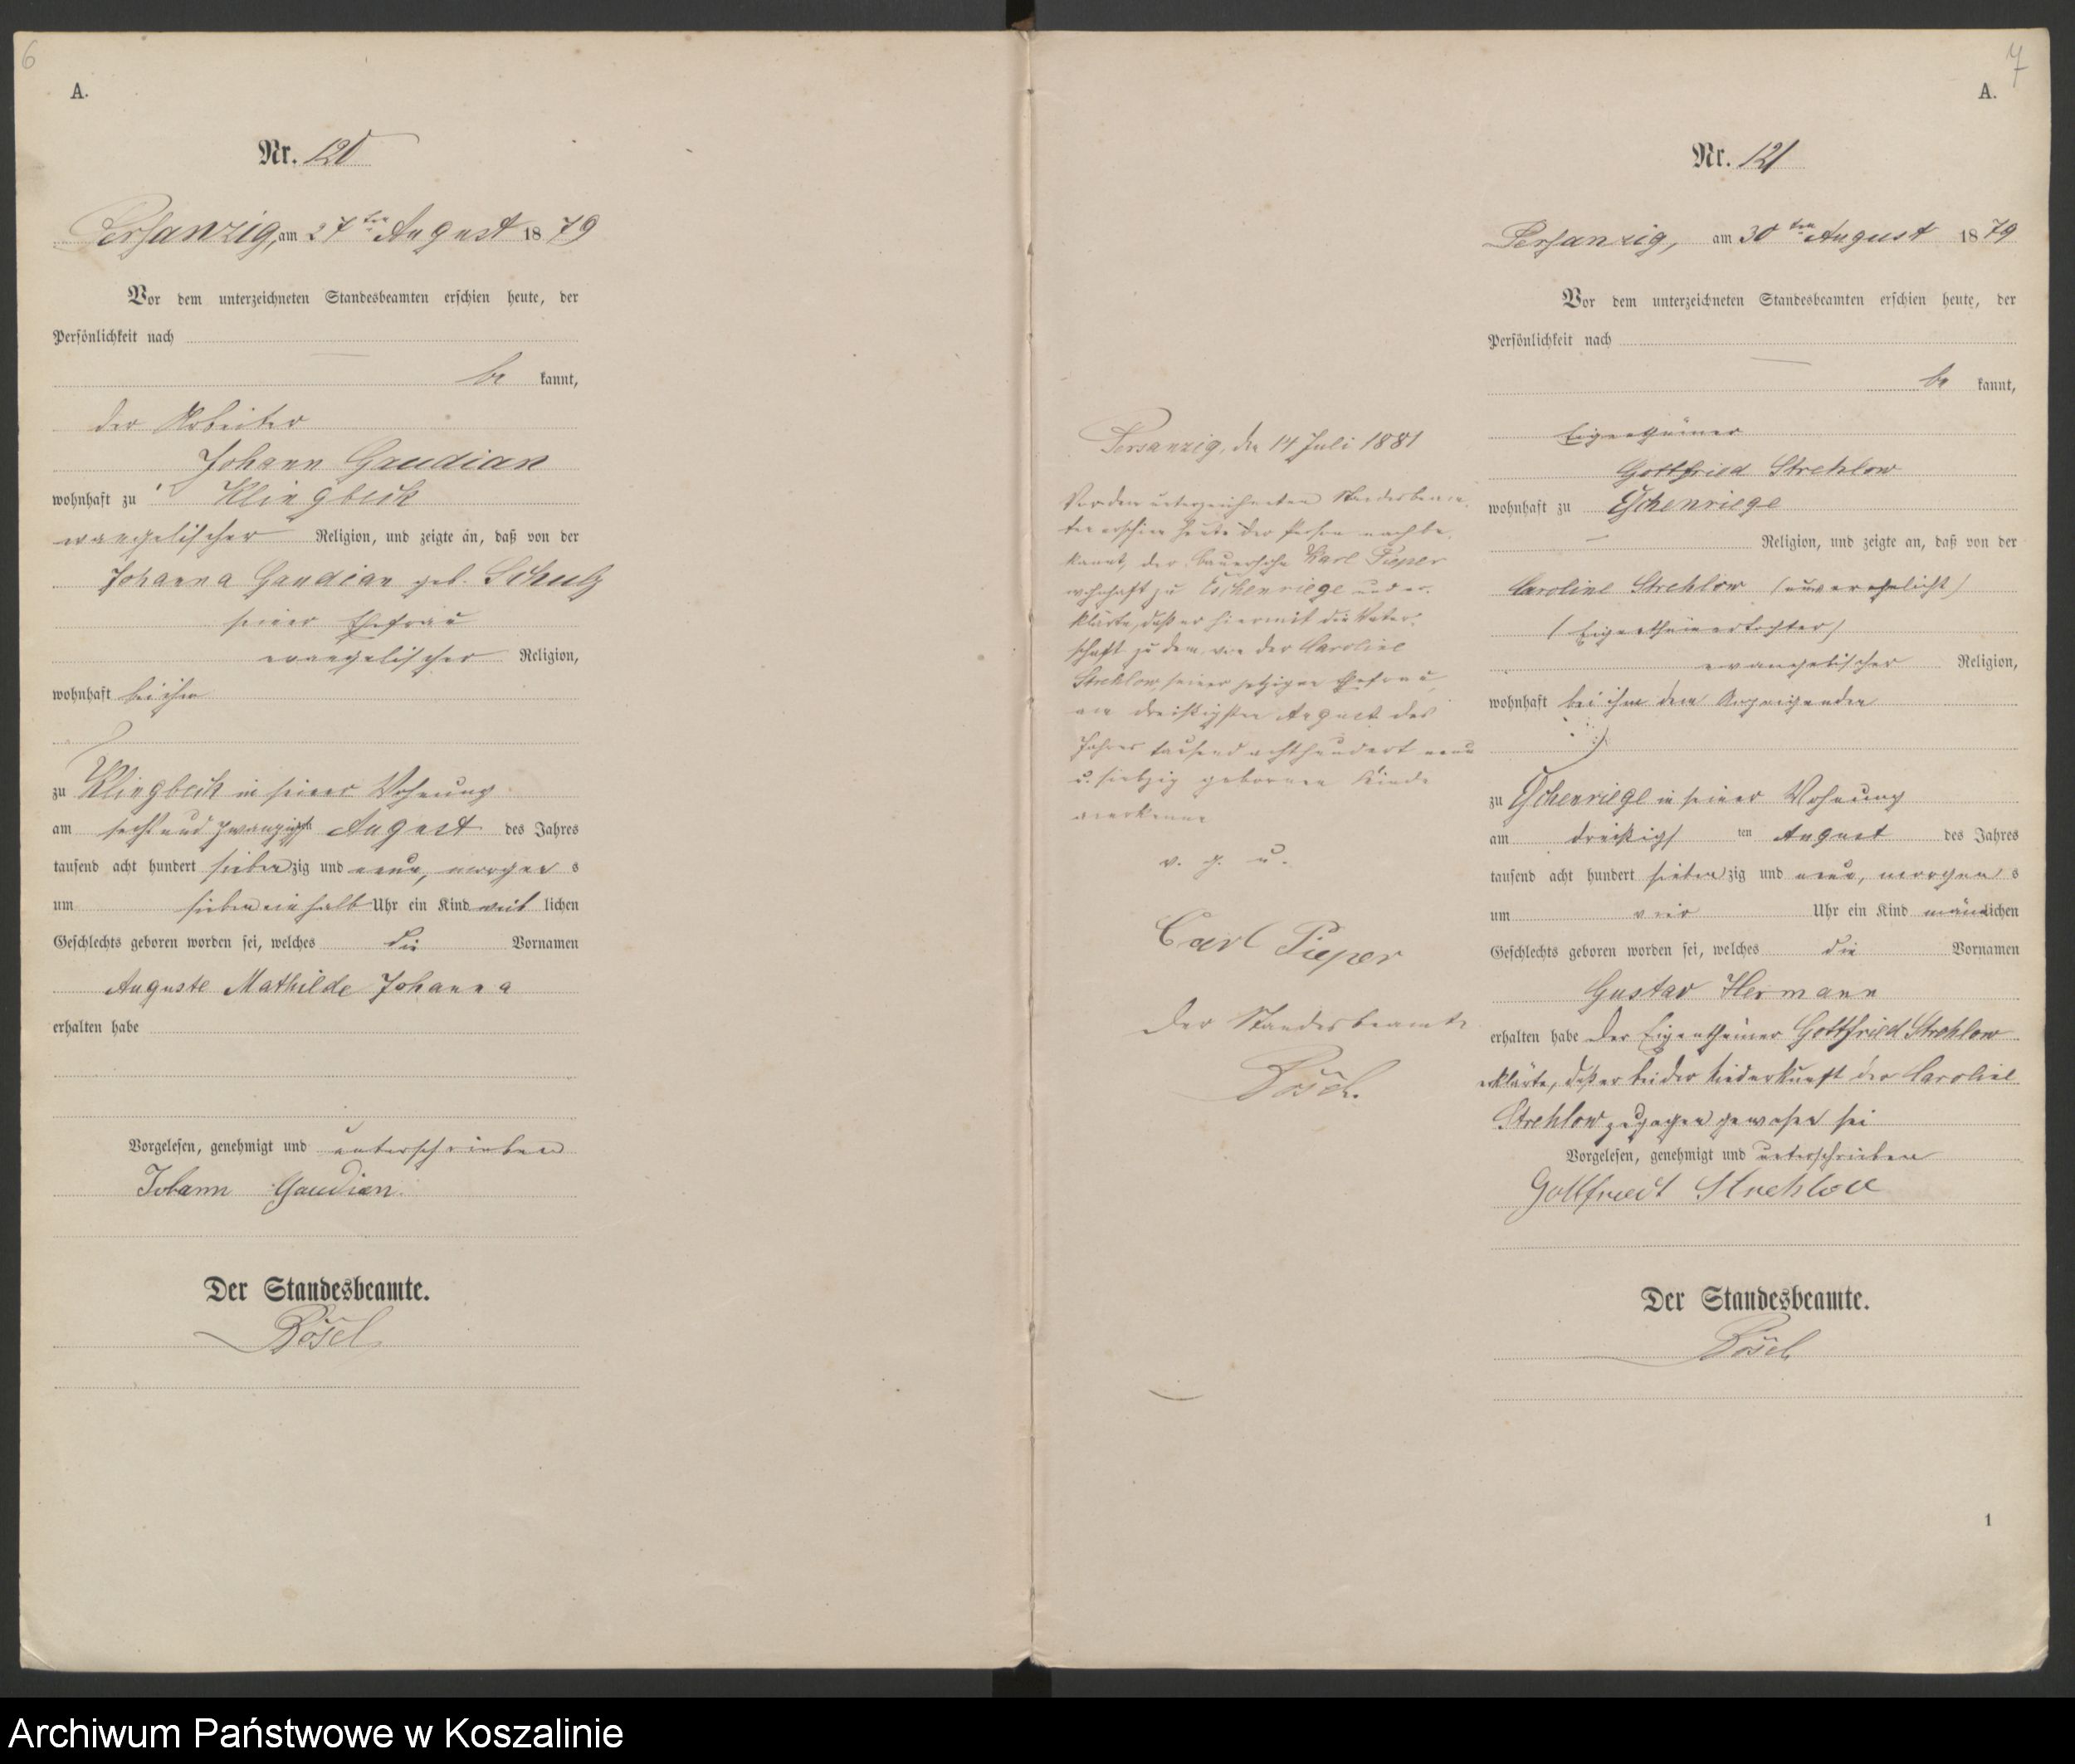 6
A.
Nr. 120
Persanzig, am 27ten August 1879
Vor dem unterzeichneten Standesbeamten erschien heute, der
Persönlichkeit nach
be kannt,
der Arbeiter
Johann Gaudian
wohnhaft zu Klingbeck
evangelischer Religion, und zeigte an, daß von der
Johanna Gaudian geb. Schulz
seiner Ehefrau
evangelischer Religion,
wohnhaft bei ihm
zu Klingbeck in seiner Wohnung
am sechs und zwanzigsten August des Jahres
tausend acht hundert siebenzig und neun, morgens
um sieben ein halb Uhr ein Kind weiblichen
Geschlechts geboren worden sei, welches die Vornamen
Auguste Mathilde Johanna
erhalten habe
Vorgelesen, genehmigt und unterschrieben
Johann Gaudian.
Der Standesbeamte.
Bösel
Persanzig, den 14 Juli 1881
Vor dem unterzeichneten Standesbeam-
ten erschien heute der Person nach be-
kannt, der Bauersohn Karl Pieper
wohnhaft zu Eschenriege und er-
klärte, daß er hiermit die Vater-
schaft zu dem, von der Caroline
Strehlow, seiner jetzigen Ehefrau,
am dreißigsten August des
Jahres tausend achthundert neun
u. siebzig geborenen Kinde
anerkenne
v. g. u.
Carl Pieper
Der Standesbeamte
Bösel.
7
A.
Nr. 121
Persanzig, am 30ten August 1879
Vor dem unterzeichneten Standesbeamten erschien heute, der
Persönlichkeit nach
be kannt,
Eigenthümer
Gottfried Strehlow
wohnhaft zu Eschenriege
Religion, und zeigte an, daß von der
Caroline Strehlow (unverehelicht)
(Eigenthümertochter)
evangelischer Religion,
wohnhaft bei ihm dem Anzeigenden
zu Eschenriege in seiner Wohnung
am dreißigs ten August des Jahres
tausend acht hundert siebenzig und neun, morgens
um vier Uhr ein Kind männlichen
Geschlechts geboren worden sei, welches die Vornamen
Gustav Hermann
erhalten habe Der Eigenthümer Gottfried Strehlow
erklärte, daß er bei der Niederkunft der Caroline
Strehlow zugegen gewesen sei
Vorgelesen, genehmigt und unterschrieben
Gottfriedt Strehlow
Der Standesbeamte.
Bösel
1
Archiwum Państwowe w Koszalinie